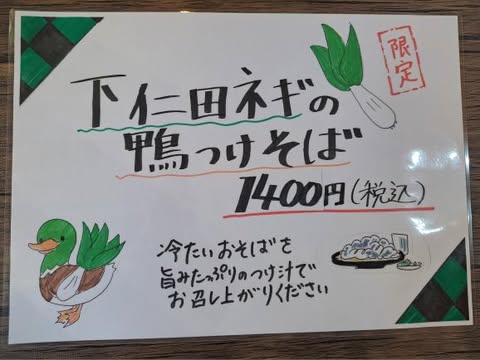 限定
下仁田ネギの
鴨つけそば
1400円(税込)
冷たいおそばを
旨みたっぷりのつけ汁で
お召し上がりください